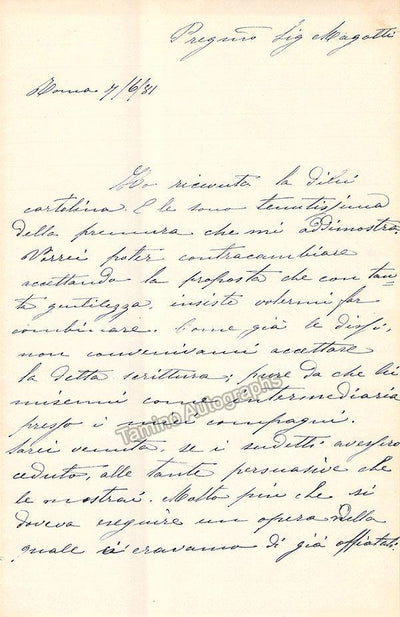 Pregmo Sig Magotti
Roma 7/6/81
Ho ricevuta la di lei
cartolina. E le sono tenutissima
della premura che mi addimostra.
Vorrei poter contracambiare
accettando la proposta che con tan-
ta gentilezza, insiste volermi far
combinare. Come già le dissi,
non convenivami accettare
la detta scrittura; pure da che lei
misemi come intermediaria
presso i miei compagni.
Sarei venuta, se i sudetti avessero
ceduto, alle tante persuasive che
le mostrai. Molto più che si
doveva eseguire un opera nella
quale si eravamo di già affiatati.
Tamino Autographs